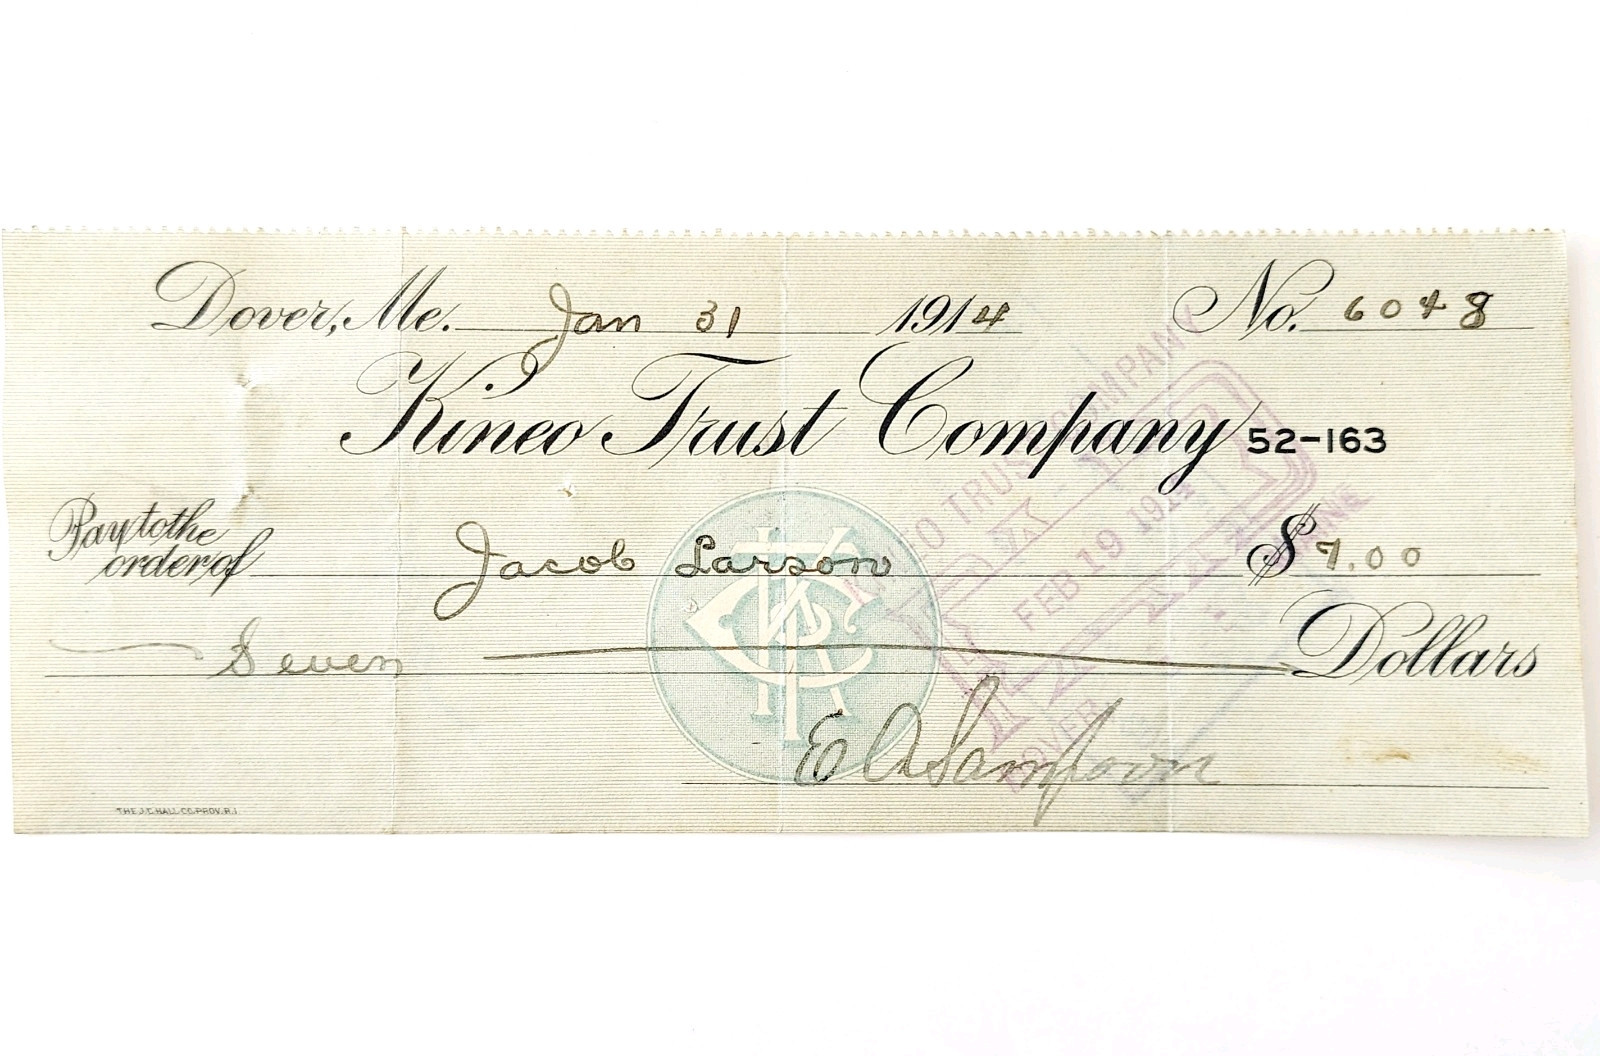 Dover, Me. Jan 31 1914 No. 6048
Kineo Trust Company 52-163
Pay to the order of Jacob Larson $7.00
Seven Dollars
E A Sampson
THE J.C. HALL CO. PROV. R.I.
KINEO TRUST COMPANY
PAID
FEB 19 191
DOVER MAINE